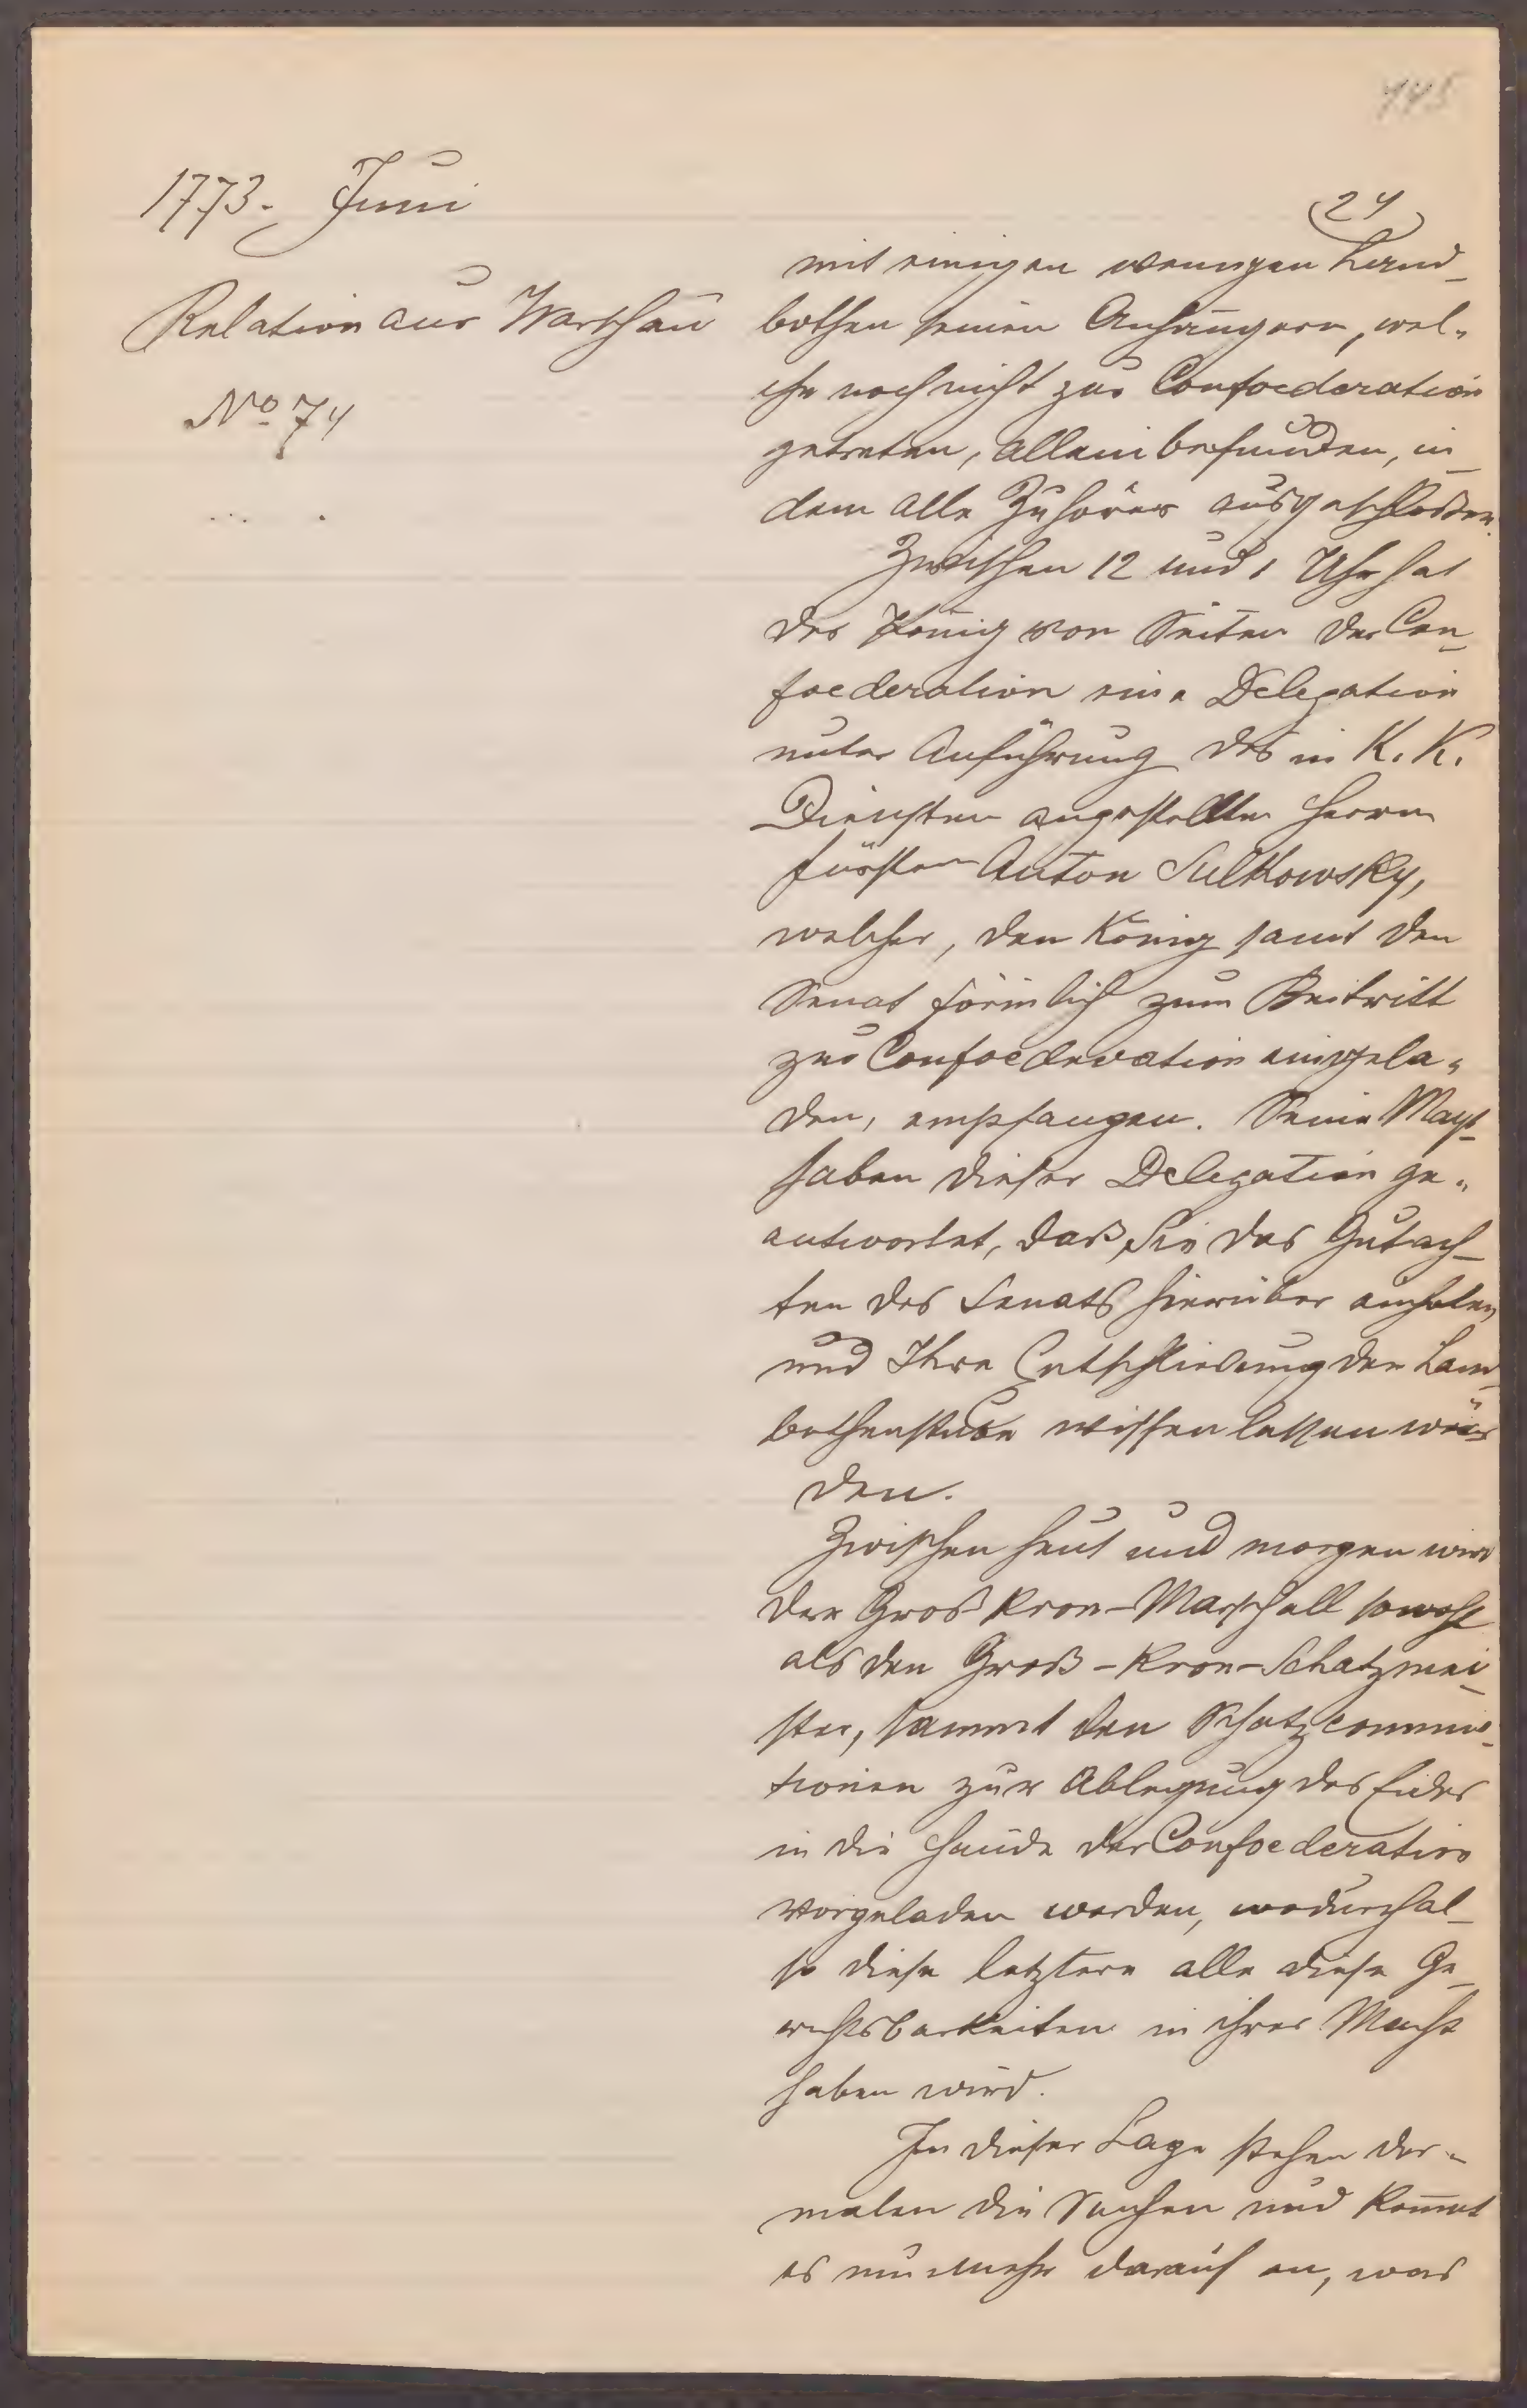 145
1773. Juni
24
Relation aus Warschau
No 74
mit einigen wenigen Land-
bothen seinen Anhängern, wel-
che noch nicht zur Confoederation
getreten, allein befunden, in-
dem alle Zuhörer ausgeschlossen.
Zwischen 12 und 1 Uhr hat
der König von Seiten der Con-
foederation eine Delegation
unter Anführung des in K. K.
Diensten angestellten Herrn
Fürsten Anton Sulkowsky,
welcher, den König samt den
Senat förmlich zum Beitritt
zur Confoederation eingela-
den, empfangen. Seine Mayt
haben dieser Delegation ge-
antwortet, daß Sie das Gutach-
ten des Senats hierüber einholen
und Ihre Entschließung der Land-
bothenstube wissen lassen wür-
den.
Zwischen heut und morgen wird
der Groß-Kron-Marschall sowohl
als der Groß-Kron-Schatzmei-
ster, sammt den Schatzcommis-
sionen zur Ablegung des Eides
in die Hände der Confoederation
vorgeladen werden, wodurch al-
so diese letztere alle diese Ge-
richtsbarkeiten in ihrer Macht
haben wird.
In dieser Lage stehen der-
malen die Sachen und kommt
es nunmehr darauf an, was